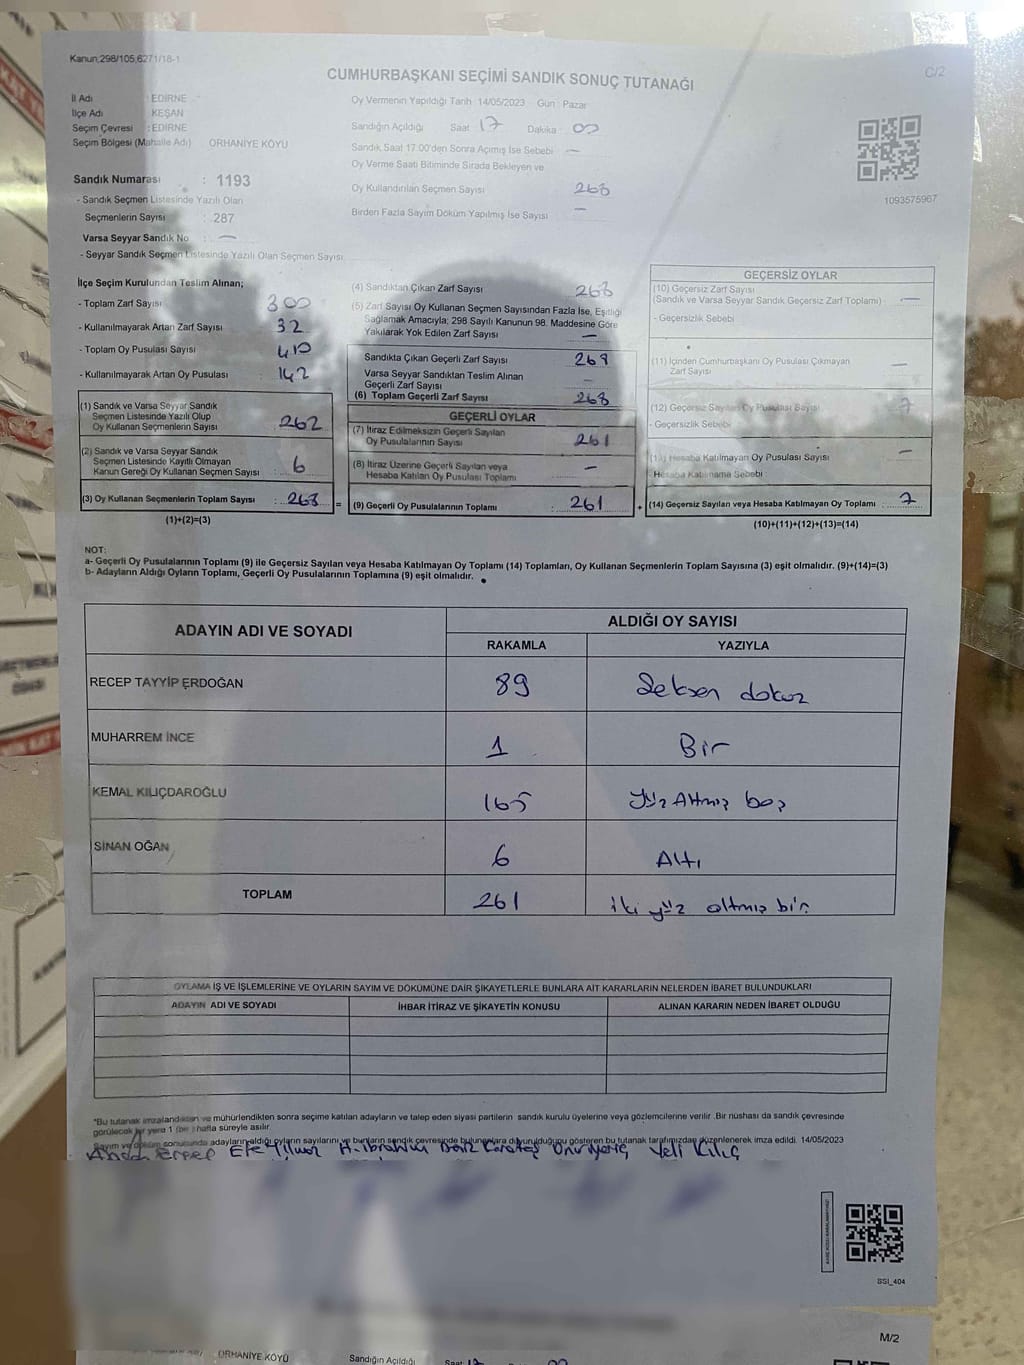 Kanun;298/105,6271/18-1
C/2
CUMHURBAŞKANI SEÇİMİ SANDIK SONUÇ TUTANAĞI
İl Adı : EDİRNE
İlçe Adı KEŞAN
Seçim Çevresi : EDİRNE
Seçim Bölgesi (Mahalle Adı) ORHANİYE KÖYÜ
Oy Vermenin Yapıldığı Tarih 14/05/2023 Gün Pazar
Sandığın Açıldığı Saat 17 Dakika 00
Sandık Saat 17.00'den Sonra Açımış İse Sebebi —
Oy Verme Saati Bitiminde Sırada Bekleyen ve
Oy Kullandırılan Seçmen Sayısı 268
Birden Fazla Sayım Döküm Yapılmış İse Sayısı —
1093575967
Sandık Numarası : 1193
- Sandık Seçmen Listesinde Yazılı Olan
Seçmenlerin Sayısı : 287
Varsa Seyyar Sandık No : —
- Seyyar Sandık Seçmen Listesinde Yazılı Olan Seçmen Sayısı
İlçe Seçim Kurulundan Teslim Alınan;
- Toplam Zarf Sayısı 300
- Kullanılmayarak Artan Zarf Sayısı 32
- Toplam Oy Pusulası Sayısı 410
- Kullanılmayarak Artan Oy Pusulası 142
(1) Sandık ve Varsa Seyyar Sandık
Seçmen Listesinde Yazılı Olup
Oy Kullanan Seçmenlerin Sayısı 262
(2) Sandık ve Varsa Seyyar Sandık
Seçmen Listesinde Kayıtlı Olmayan
Kanun Gereği Oy Kullanan Seçmen Sayısı : 6
(3) Oy Kullanan Seçmenlerin Toplam Sayısı : 268 =
(1)+(2)=(3)
(4) Sandıktan Çıkan Zarf Sayısı 268
(5) Zarf Sayısı Oy Kullanan Seçmen Sayısından Fazla İse, Eşitliği
Sağlamak Amacıyla; 298 Sayılı Kanunun 98. Maddesine Göre
Yakılarak Yok Edilen Zarf Sayısı —
Sandıkta Çıkan Geçerli Zarf Sayısı 268
Varsa Seyyar Sandıktan Teslim Alınan
Geçerli Zarf Sayısı —
(6) Toplam Geçerli Zarf Sayısı 268
GEÇERLİ OYLAR
(7) İtiraz Edilmeksizin Geçerli Sayılan
Oy Pusulalarının Sayısı 261
(8) İtiraz Üzerine Geçerli Sayılan veya
Hesaba Katılan Oy Pusulası Toplamı —
(9) Geçerli Oy Pusulalarının Toplamı : 261 +
GEÇERSİZ OYLAR
(10) Geçersiz Zarf Sayısı
(Sandık ve Varsa Seyyar Sandık Geçersiz Zarf Toplamı) —
- Geçersizlik Sebebi
(11) İçinden Cumhurbaşkanı Oy Pusulası Çıkmayan
Zarf Sayısı —
(12) Geçersiz Sayılan Oy Pusulası Sayısı 7
- Geçersizlik Sebebi
(13) Hesaba Katılmayan Oy Pusulası Sayısı —
Hesaba Katılmama Sebebi :
(14) Geçersiz Sayılan veya Hesaba Katılmayan Oy Toplamı : 7
(10)+(11)+(12)+(13)=(14)
NOT:
a- Geçerli Oy Pusulalarının Toplamı (9) ile Geçersiz Sayılan veya Hesaba Katılmayan Oy Toplamı (14) Toplamları, Oy Kullanan Seçmenlerin Toplam Sayısına (3) eşit olmalıdır. (9)+(14)=(3)
b- Adayların Aldığı Oyların Toplamı, Geçerli Oy Pusulalarının Toplamına (9) eşit olmalıdır.
ADAYIN ADI VE SOYADI
ALDIĞI OY SAYISI
RAKAMLA YAZIYLA
RECEP TAYYİP ERDOĞAN 89 Seksen dokuz
MUHARREM İNCE 1 Bir
KEMAL KILIÇDAROĞLU 165 Yüz Altmış beş
SİNAN OĞAN 6 Altı
TOPLAM 261 iki yüz altmış bir
OYLAMA İŞ VE İŞLEMLERİNE VE OYLARIN SAYIM VE DÖKÜMÜNE DAİR ŞİKAYETLERLE BUNLARA AİT KARARLARIN NELERDEN İBARET BULUNDUKLARI
ADAYIN ADI VE SOYADI İHBAR İTİRAZ VE ŞİKAYETİN KONUSU ALINAN KARARIN NEDEN İBARET OLDUĞU
*Bu tutanak imzalandıktan ve mühürlendikten sonra seçime katılan adayların ve talep eden siyasi partilerin sandık kurulu üyelerine veya gözlemcilerine verilir. Bir nüshası da sandık çevresinde
görülecek bir yere 1 (bir) hafta süreyle asılır.
Sayım ve döküm sonucunda adayların aldığı oyların sayılarını ve bunların sandık çevresinde bulunanlara duyurulduğunu gösteren bu tutanak tarafımızdan düzenlenerek imza edildi. 14/05/2023
Efe Yılmaz H.İbrahim Deniz Karataş Onur Veli Kılıç
SSİ_404
M/2
ORHANİYE KÖYÜ Sandığın Açıldığı Saat 17 00